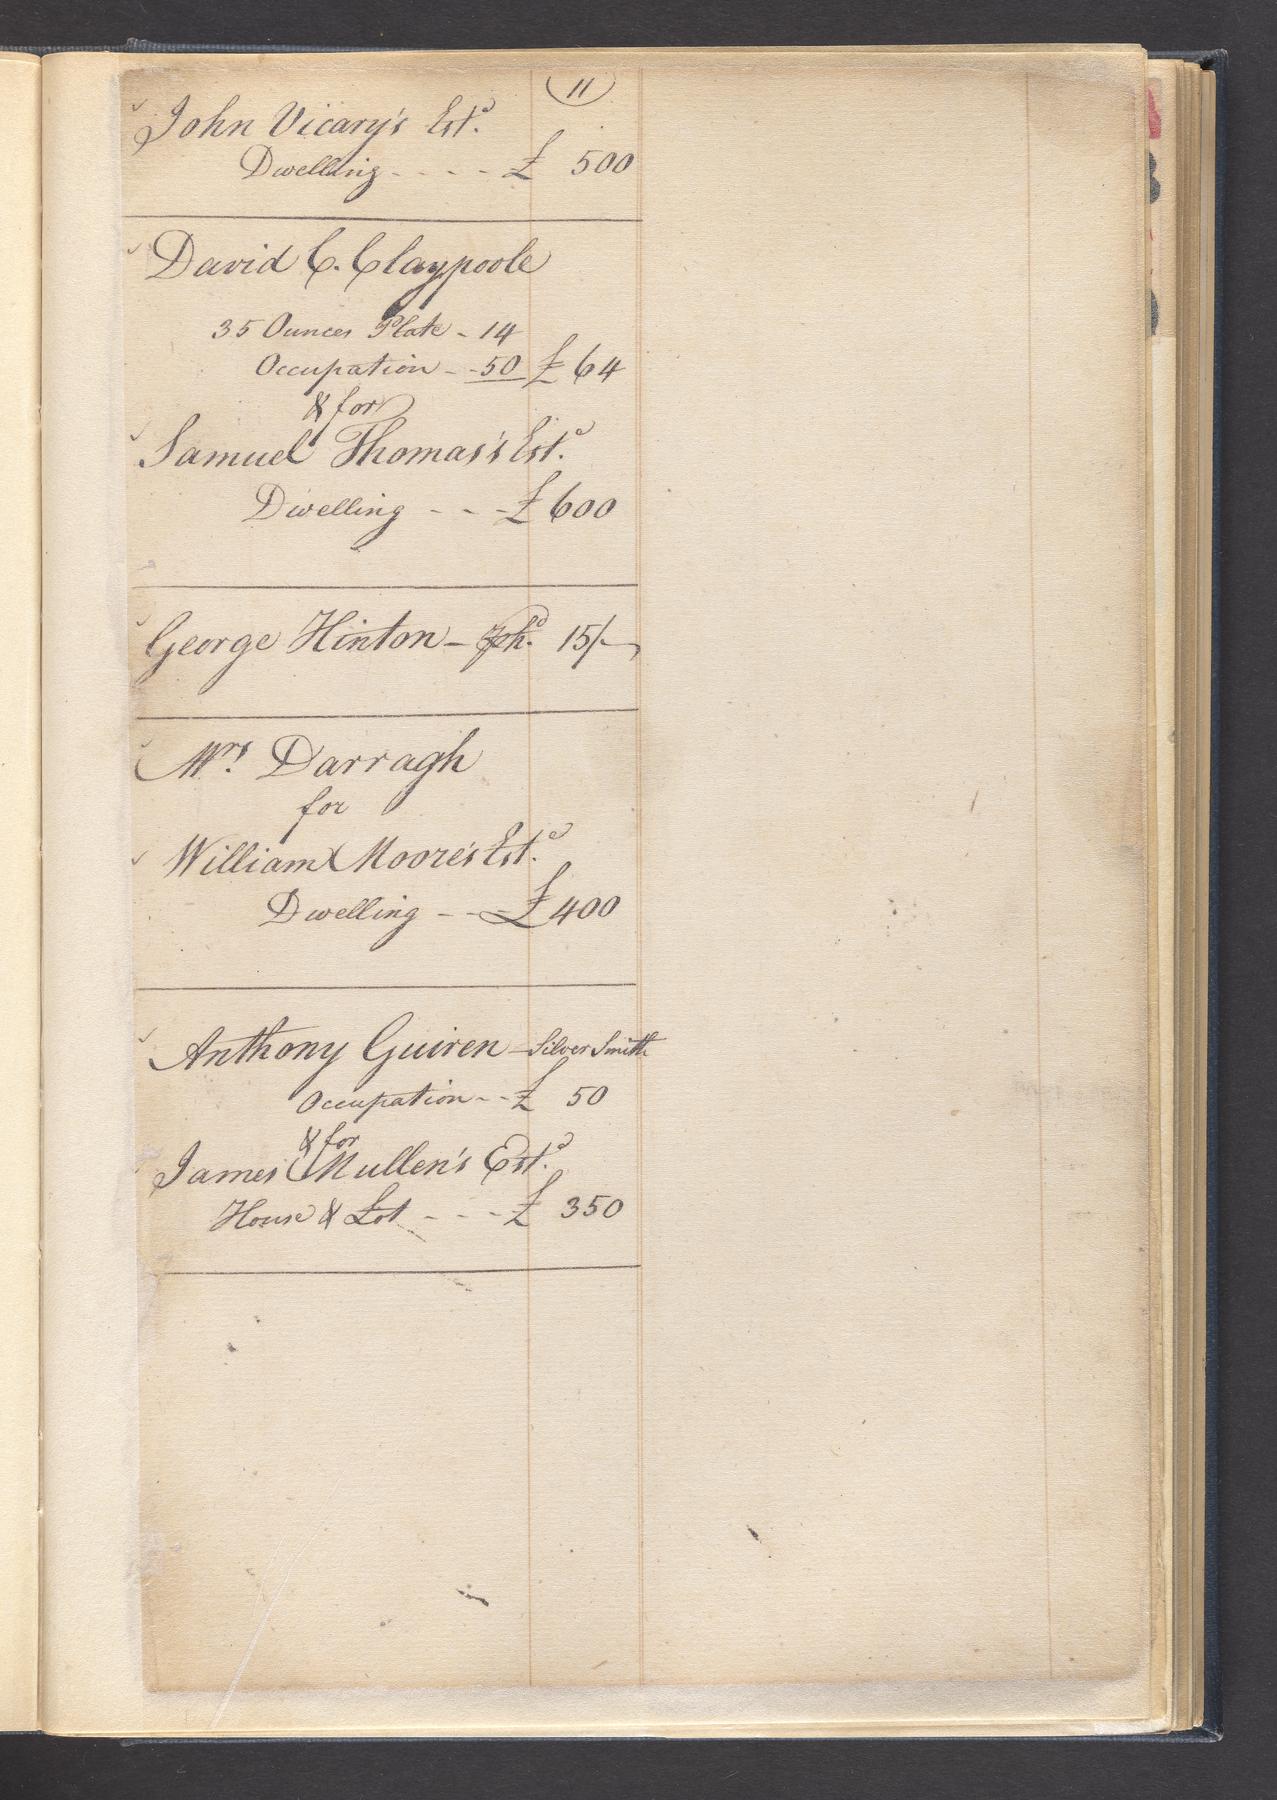 11
John Vicary's Estᵉ.
Dwelling - - - - £ 500
David C. Claypoole
35 Ounces Plate - 14
Occupation - - 50 £ 64
& for
Samuel Thomas's Estᵉ.
Dwelling - - - £ 600
George Hinton - 15/-
Mrs. Darragh
for
William Moore's Estᵉ.
Dwelling - - - £ 400
Anthony Guiren - Silver Smith
Occupation - - £ 50
& for
James Mullen's Estᵉ.
House & Lot - - - £ 350